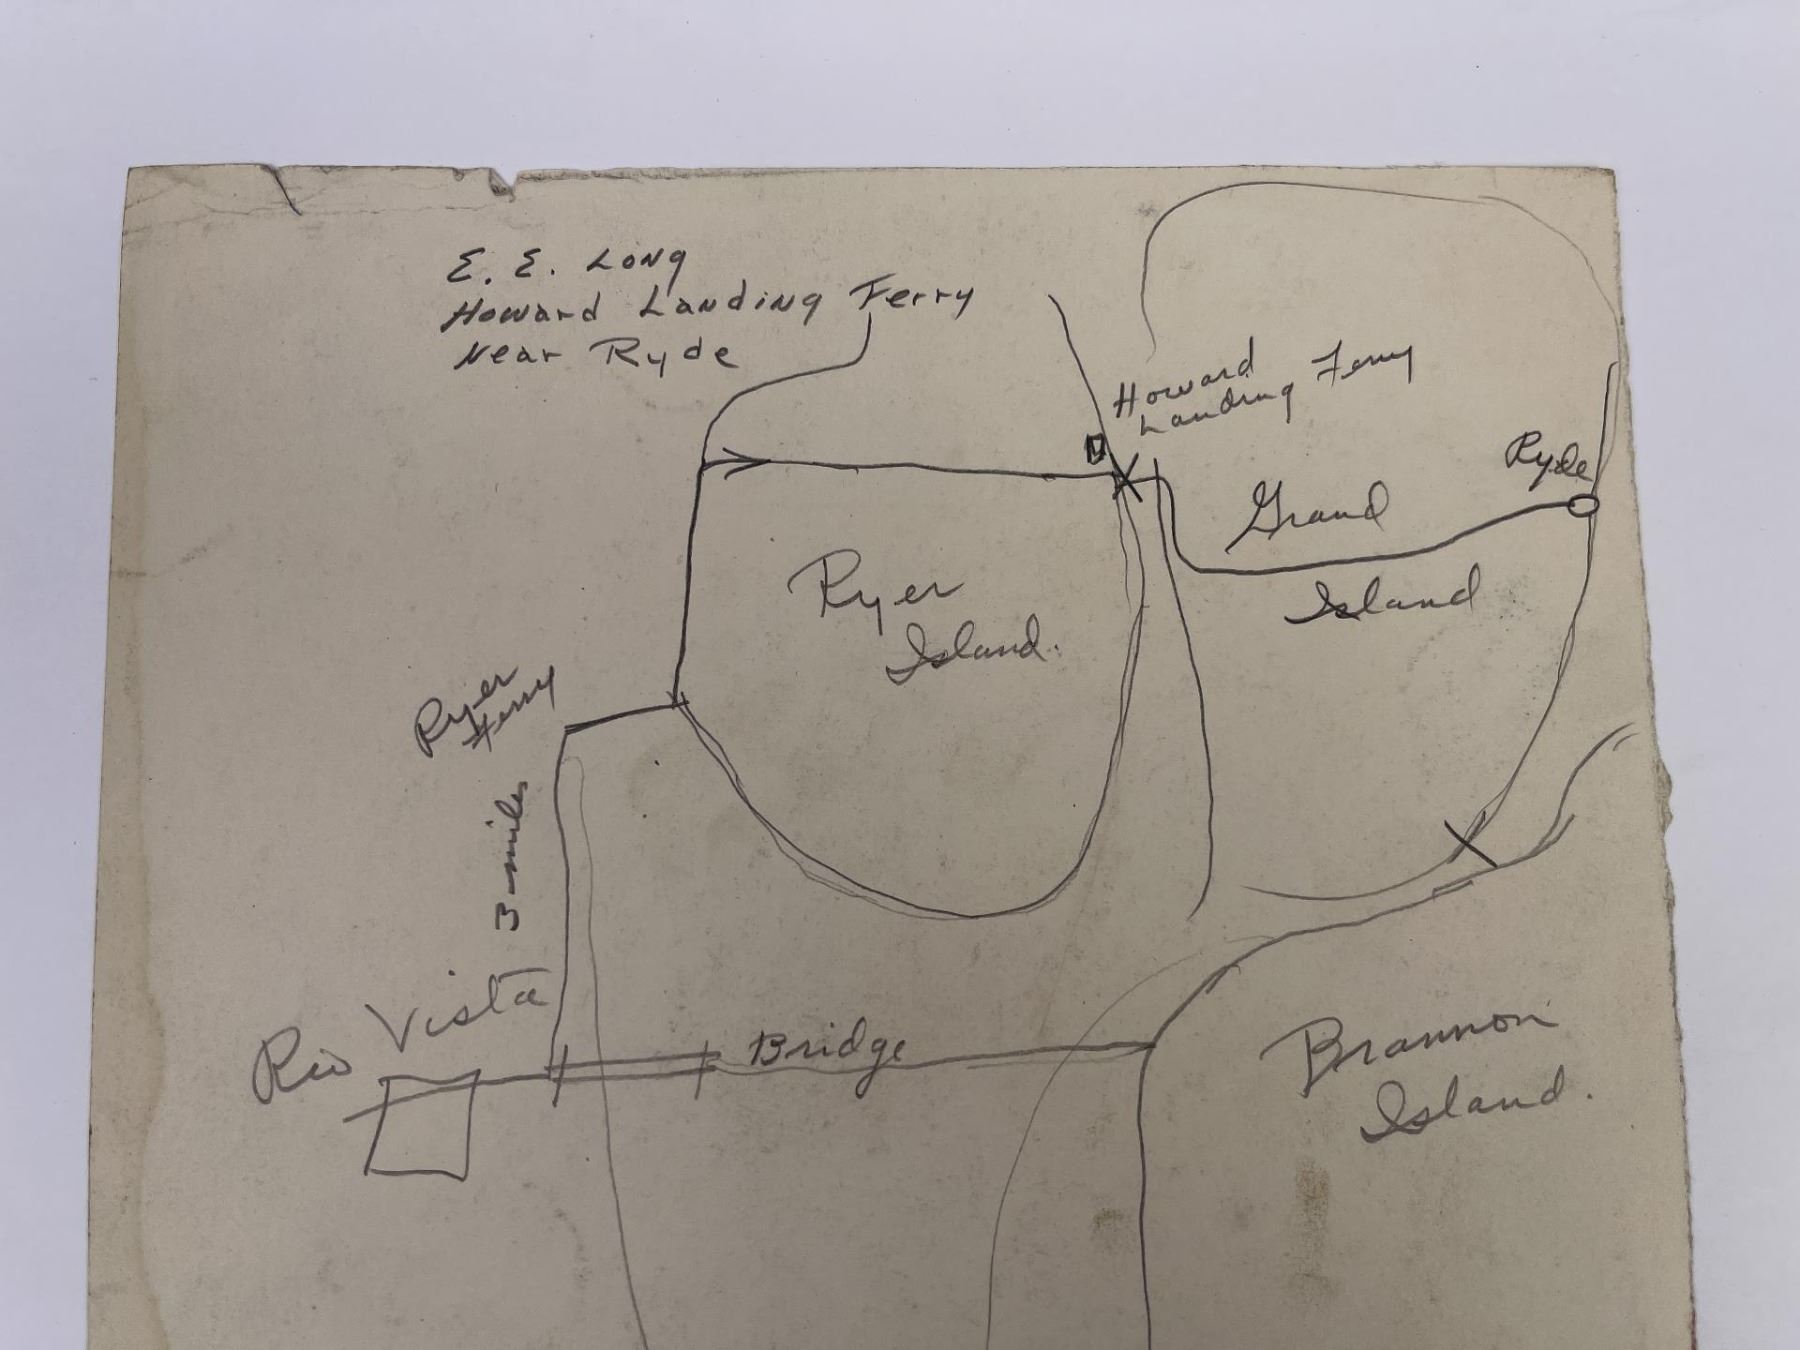 E. E. Long
Howard Landing Ferry
Near Ryde
Howard
Landing Ferry
Ryde
Grand
Island
Ryer
Island.
Ryer
Ferry
3 miles
Rio Vista
Bridge
Brannon
Island.